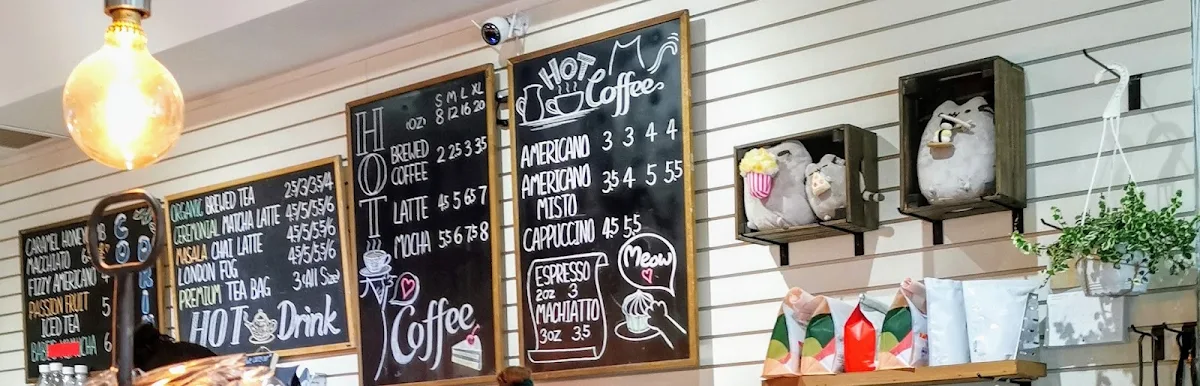 COLD
DRI
CARAMEL HONEY
MACCHIATO 6
FIZZY AMERICANO
5
PASSION FRUIT
ICED TEA
ORGANIC BREWED TEA 2.5/3/3.5/4
CEREMONIAL MATCHA LATTE 4.5/5/5.5/6
MASALA CHAI LATTE 4.5/5/5.5/6
LONDON FOG 4.5/5/5.5/6
PREMIUM TEA BAG 3 (All Size)
HOT Drink
HOT
S M L XL
(OZ) 8 12 16 20
BREWED 2 2.5 3 3.5
COFFEE
LATTE 4.5 5 6.5 7
MOCHA 5.5 6 7.5 8
Coffee
HOT
Coffee
AMERICANO 3 3 4 4
AMERICANO 3.5 4 5 5.5
MISTO
CAPPUCCINO 4.5 5.5
ESPRESSO
2oz 3
MACHIATTO
3oz 3.5
Meow